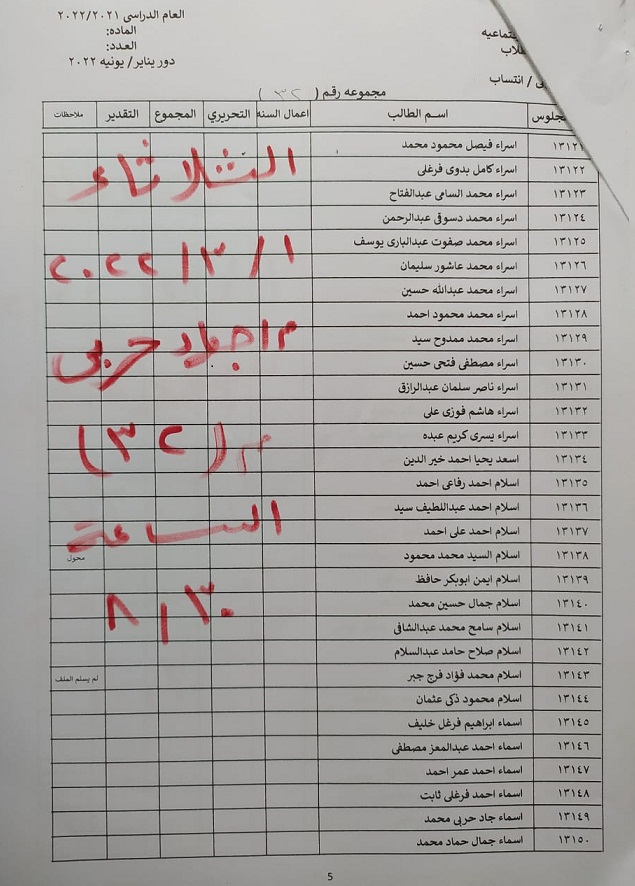 العام الدراسى ٢٠٢٢/٢٠٢١
المادة:
العدد:
دور يناير/ يونيه ٢٠٢٢
لاب
/ انتساب
مجموعه رقم ( ٣٢ )
جلوس اسم الطالب اعمال السنه التحريري المجموع التقدير ملاحظات
١٣١٢١ اسراء فيصل محمود محمد
١٣١٢٢ اسراء كامل بدوى فرغلى
١٣١٢٣ اسراء محمد السامى عبدالفتاح
١٣١٢٤ اسراء محمد دسوقى عبدالرحمن
١٣١٢٥ اسراء محمد صفوت عبدالبارى يوسف
١٣١٢٦ اسراء محمد عاشور سليمان
١٣١٢٧ اسراء محمد عبدالله حسين
١٣١٢٨ اسراء محمد محمود احمد
١٣١٢٩ اسراء محمد ممدوح سيد
١٣١٣٠ اسراء مصطفى فتحى حسين
١٣١٣١ اسراء ناصر سلمان عبدالرازق
١٣١٣٢ اسراء هاشم فوزى على
١٣١٣٣ اسراء يسرى كريم عبده
١٣١٣٤ اسعد يحيا احمد خير الدين
١٣١٣٥ اسلام احمد رفاعى احمد
١٣١٣٦ اسلام احمد عبداللطيف سيد
١٣١٣٧ اسلام احمد على احمد
١٣١٣٨ اسلام السيد محمد محمود محول
١٣١٣٩ اسلام ايمن ابوبكر حافظ
١٣١٤٠ اسلام جمال حسين محمد
١٣١٤١ اسلام سامح محمد عبدالشافى
١٣١٤٢ اسلام صلاح حامد عبدالسلام
١٣١٤٣ اسلام محمد فؤاد فرج جبر لم يسلم الملف
١٣١٤٤ اسلام محمود ذكى عثمان
١٣١٤٥ اسماء ابراهيم فرغل خليف
١٣١٤٦ اسماء احمد عبدالمعز مصطفى
١٣١٤٧ اسماء احمد عمر احمد
١٣١٤٨ اسماء احمد فرغلى ثابت
١٣١٤٩ اسماء جاد حربى محمد
١٣١٥٠ اسماء جمال حماد محمد
الثلاثاء
١/٣/٢٠٢٢
حربى
م (٣٢)
الساعة
٨/٣٠
5